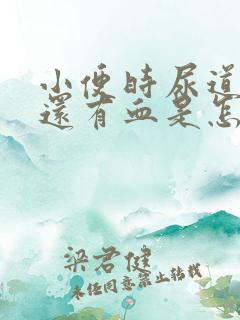 小便時尿道
還有血是怎
梁君健
未经同意禁止转载